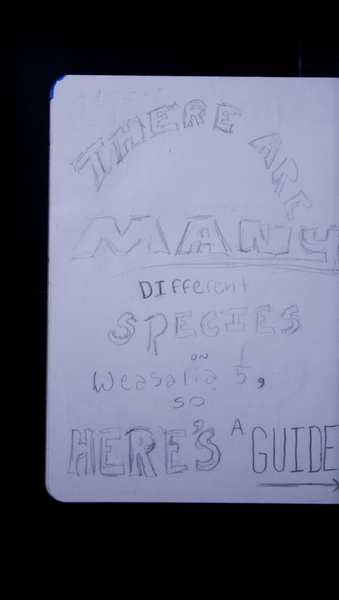 THERE ARE
MANY
DIfferent
SPECIES
ON
Weasalia 5,
SO
HERE'S A GUIDE